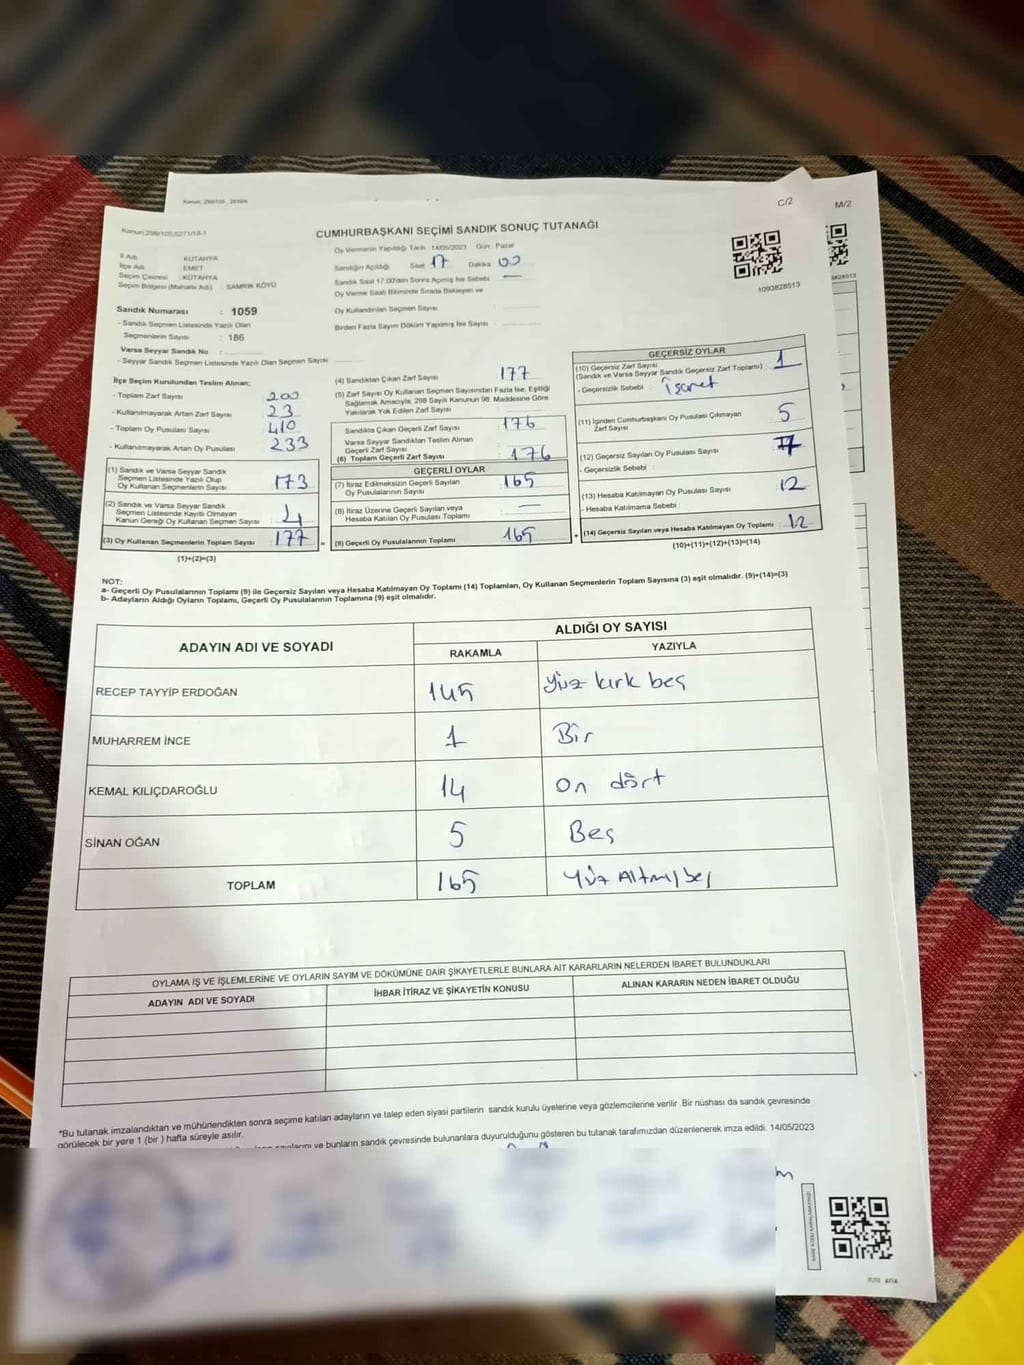 C/2
M/2
Kanun;298/105,6271/18-1
CUMHURBAŞKANI SEÇİMİ SANDIK SONUÇ TUTANAĞI
1093828513
İl Adı : KÜTAHYA
İlçe Adı : EMET
Seçim Çevresi : KÜTAHYA
Seçim Bölgesi (Mahalle Adı) SAMRIK KÖYÜ
Sandık Numarası : 1059
- Sandık Seçmen Listesinde Yazılı Olan
Seçmenlerin Sayısı : 186
Varsa Seyyar Sandık No :
- Seyyar Sandık Seçmen Listesinde Yazılı Olan Seçmen Sayısı
Oy Vermenin Yapıldığı Tarih : 14/05/2023 Gün : Pazar
Sandığın Açıldığı Saat 17 Dakika 00
Sandık Saat 17.00'den Sonra Açılmış İse Sebebi —
Oy Verme Saati Bitiminde Sırada Bekleyen ve
Oy Kullandırılan Seçmen Sayısı :
Birden Fazla Sayım Döküm Yapılmış İse Sayısı :
İlçe Seçim Kurulundan Teslim Alınan;
- Toplam Zarf Sayısı : 200
- Kullanılmayarak Artan Zarf Sayısı : 23
- Toplam Oy Pusulası Sayısı : 410
- Kullanılmayarak Artan Oy Pusulası : 233
(1) Sandık ve Varsa Seyyar Sandık
Seçmen Listesinde Yazılı Olup
Oy Kullanan Seçmenlerin Sayısı : 173
(2) Sandık ve Varsa Seyyar Sandık
Seçmen Listesinde Kayıtlı Olmayan
Kanun Gereği Oy Kullanan Seçmen Sayısı : 4
(3) Oy Kullanan Seçmenlerin Toplam Sayısı : 177
(1)+(2)=(3)
(4) Sandıktan Çıkan Zarf Sayısı : 177
(5) Zarf Sayısı Oy Kullanan Seçmen Sayısından Fazla İse, Eşitliği
Sağlamak Amacıyla, 298 Sayılı Kanunun 98. Maddesine Göre
Yakılarak Yok Edilen Zarf Sayısı :
Sandıkta Çıkan Geçerli Zarf Sayısı : 176
Varsa Seyyar Sandıktan Teslim Alınan
Geçerli Zarf Sayısı :
(6) Toplam Geçerli Zarf Sayısı : 176
GEÇERLİ OYLAR
(7) İtiraz Edilmeksizin Geçerli Sayılan
Oy Pusulalarının Sayısı : 165
(8) İtiraz Üzerine Geçerli Sayılan veya
Hesaba Katılan Oy Pusulası Toplamı : —
(9) Geçerli Oy Pusulalarının Toplamı : 165
GEÇERSİZ OYLAR
(10) Geçersiz Zarf Sayısı
(Sandık ve Varsa Seyyar Sandık Geçersiz Zarf Toplamı) : 1
- Geçersizlik Sebebi : İşaret
(11) İçinden Cumhurbaşkanı Oy Pusulası Çıkmayan
Zarf Sayısı : 5
(12) Geçersiz Sayılan Oy Pusulası Sayısı :
- Geçersizlik Sebebi :
(13) Hesaba Katılmayan Oy Pusulası Sayısı : 12
- Hesaba Katılmama Sebebi :
(14) Geçersiz Sayılan veya Hesaba Katılmayan Oy Toplamı : 12
(10)+(11)+(12)+(13)=(14)
NOT:
a- Geçerli Oy Pusulalarının Toplamı (9) ile Geçersiz Sayılan veya Hesaba Katılmayan Oy Toplamı (14) Toplamları, Oy Kullanan Seçmenlerin Toplam Sayısına (3) eşit olmalıdır. (9)+(14)=(3)
b- Adayların Aldığı Oyların Toplamı, Geçerli Oy Pusulalarının Toplamına (9) eşit olmalıdır.
ADAYIN ADI VE SOYADI
ALDIĞI OY SAYISI
RAKAMLA YAZIYLA
RECEP TAYYİP ERDOĞAN 145 Yüz kırk beş
MUHARREM İNCE 1 Bir
KEMAL KILIÇDAROĞLU 14 On dört
SİNAN OĞAN 5 Beş
TOPLAM 165 Yüz Altmışbeş
OYLAMA İŞ VE İŞLEMLERİNE VE OYLARIN SAYIM VE DÖKÜMÜNE DAİR ŞİKAYETLERLE BUNLARA AİT KARARLARIN NELERDEN İBARET BULUNDUKLARI
ADAYIN ADI VE SOYADI İHBAR İTİRAZ VE ŞİKAYETİN KONUSU ALINAN KARARIN NEDEN İBARET OLDUĞU
*Bu tutanak imzalandıktan ve mühürlendikten sonra seçime katılan adayların ve talep eden siyasi partilerin sandık kurulu üyelerine veya gözlemcilerine verilir .Bir nüshası da sandık çevresinde
görülecek bir yere 1 (bir ) hafta süreyle asılır.
ve bunların sandık çevresinde bulunanlara duyurulduğunu gösteren bu tutanak tarafımızdan düzenlenerek imza edildi. 14/05/2023